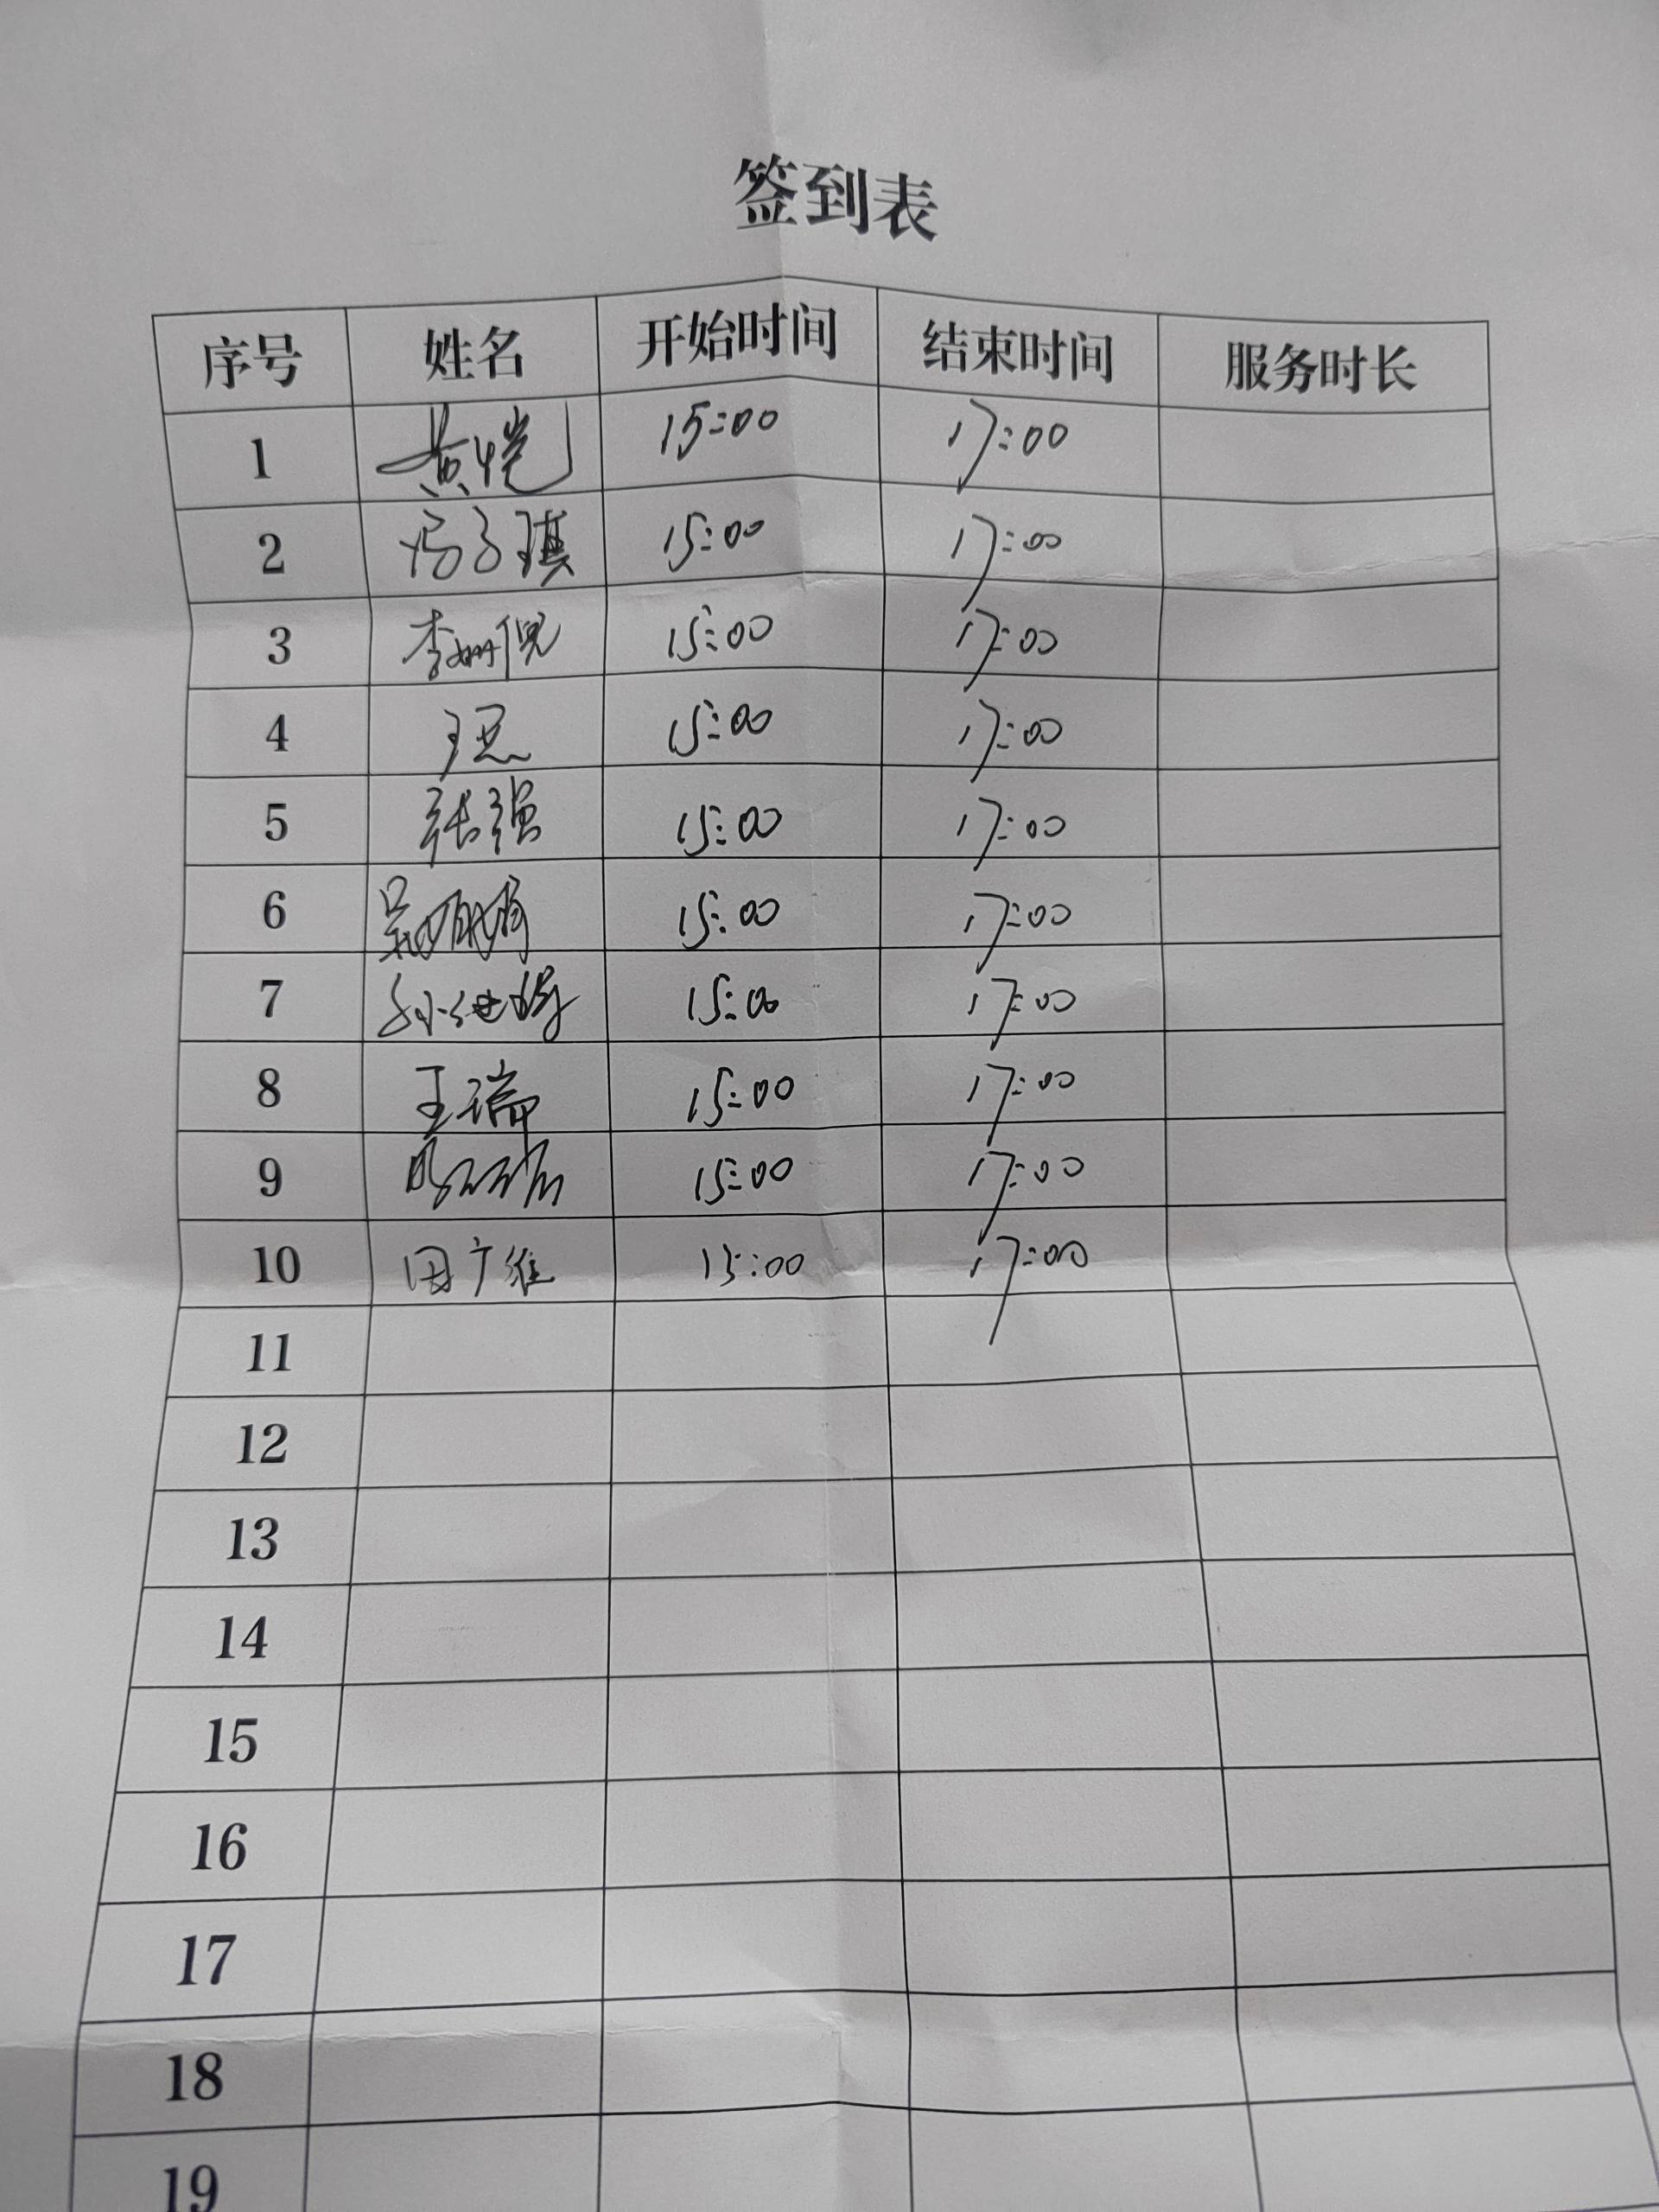 签到表
序号 姓名 开始时间 结束时间 服务时长
1 黄恺 15:00 17:00
2 冯子琪 15:00 17:00
3 李姗倪 15:00 17:00
4 王思 15:00 17:00
5 张强 15:00 17:00
6 15:00 17:00
7 15:00 17:00
8 王瑞 15:00 17:00
9 15:00 17:00
10 田广维 15:00 17:00
11
12
13
14
15
16
17
18
19